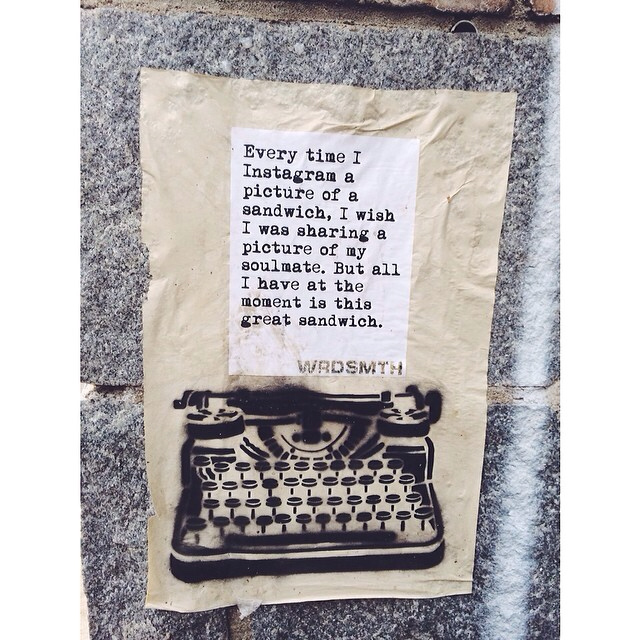 Every time I
Instagram a
picture of a
sandwich, I wish
I was sharing a
picture of my
soulmate. But all
I have at the
moment is this
great sandwich.
WRDSMTH